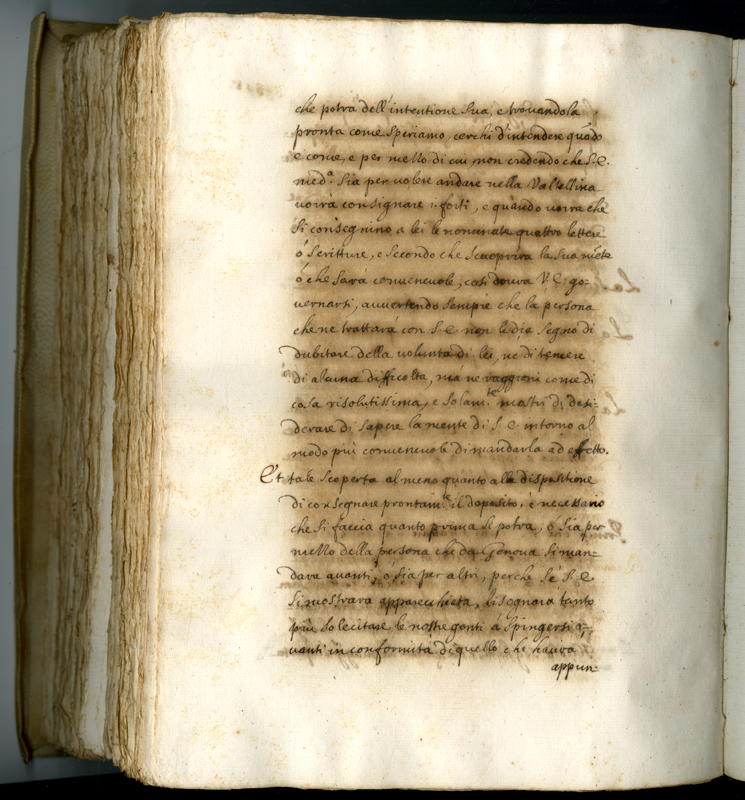 che potrà dell'intentione sua, e trovandola
pronta come speriamo, cerchi d'intendere quãdo
e come, e per mezzo di cui non credendo che S. E.
med.ª sia per volere andare nella Valtellina
vorrà consignare i forti, e quando vorrà che
si consegnino a lei le nominate quattro lettere
ò scritture, e secondo che scuoprirà la sua mẽte
ò che sarà convenevole, così dovrà V. E. go-
vernarsi, avvertendo sempre che la persona
che ne trattarà con S. E. non le die segno di
dubitare della voluntà di lei, nè di temere
di alcuna difficoltà, mà ne raggioni come di
cosa risolutissima, e solam.te mostri di desi-
derare di sapere la mente di S. E. intorno al
modo più convenevole di mandarla ad effetto.
Et tale scoperta al meno quanto alla dispositione
di consegnare prontam.te il deposito, è necessario
che si faccia quanto prima si potrà, ò sia per
mezzo della persona che da Genova si man-
darà avanti, ò sia per altri, perche se S. E.
si mostrarà apparecchiata, bisognarà tanto
più solecitare le nostre genti a spingersi a-
vanti in conformità di quello che havrà
appun-